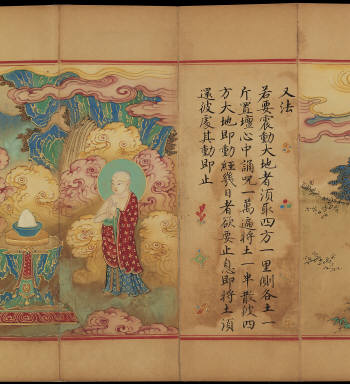 又法
若要震動大地者須取四方一里側各土一
斤置壇心中誦呪一萬遍將土一半散彼四
方大地即動經幾日者欲要止息即將土須
還彼處其動即止